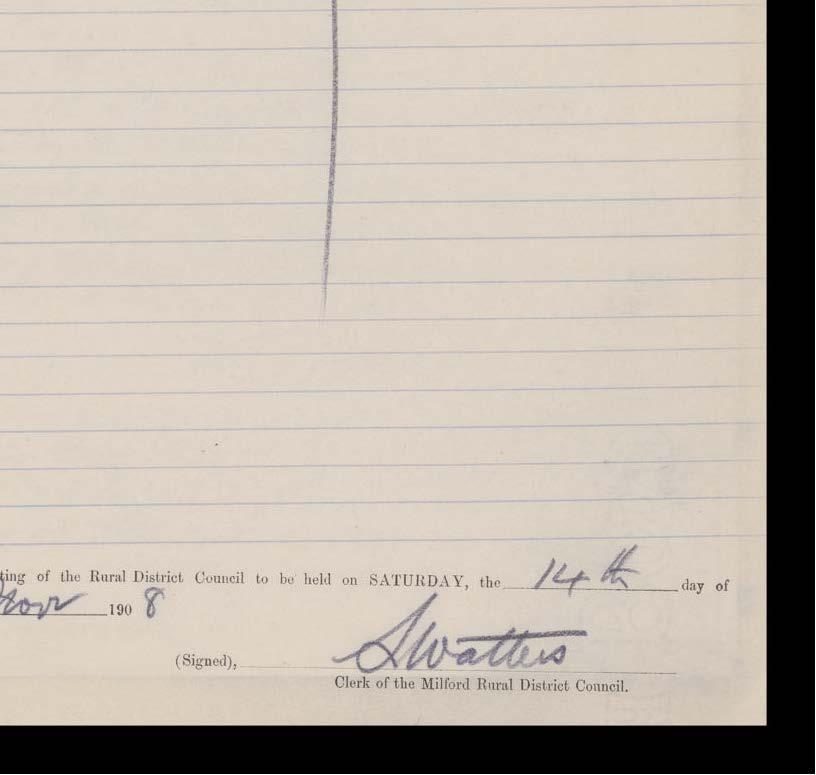 ting of the Rural District Council to be held on SATURDAY, the 14th day of
Novr 190 8
(Signed), S Watters
Clerk of the Milford Rural District Council.